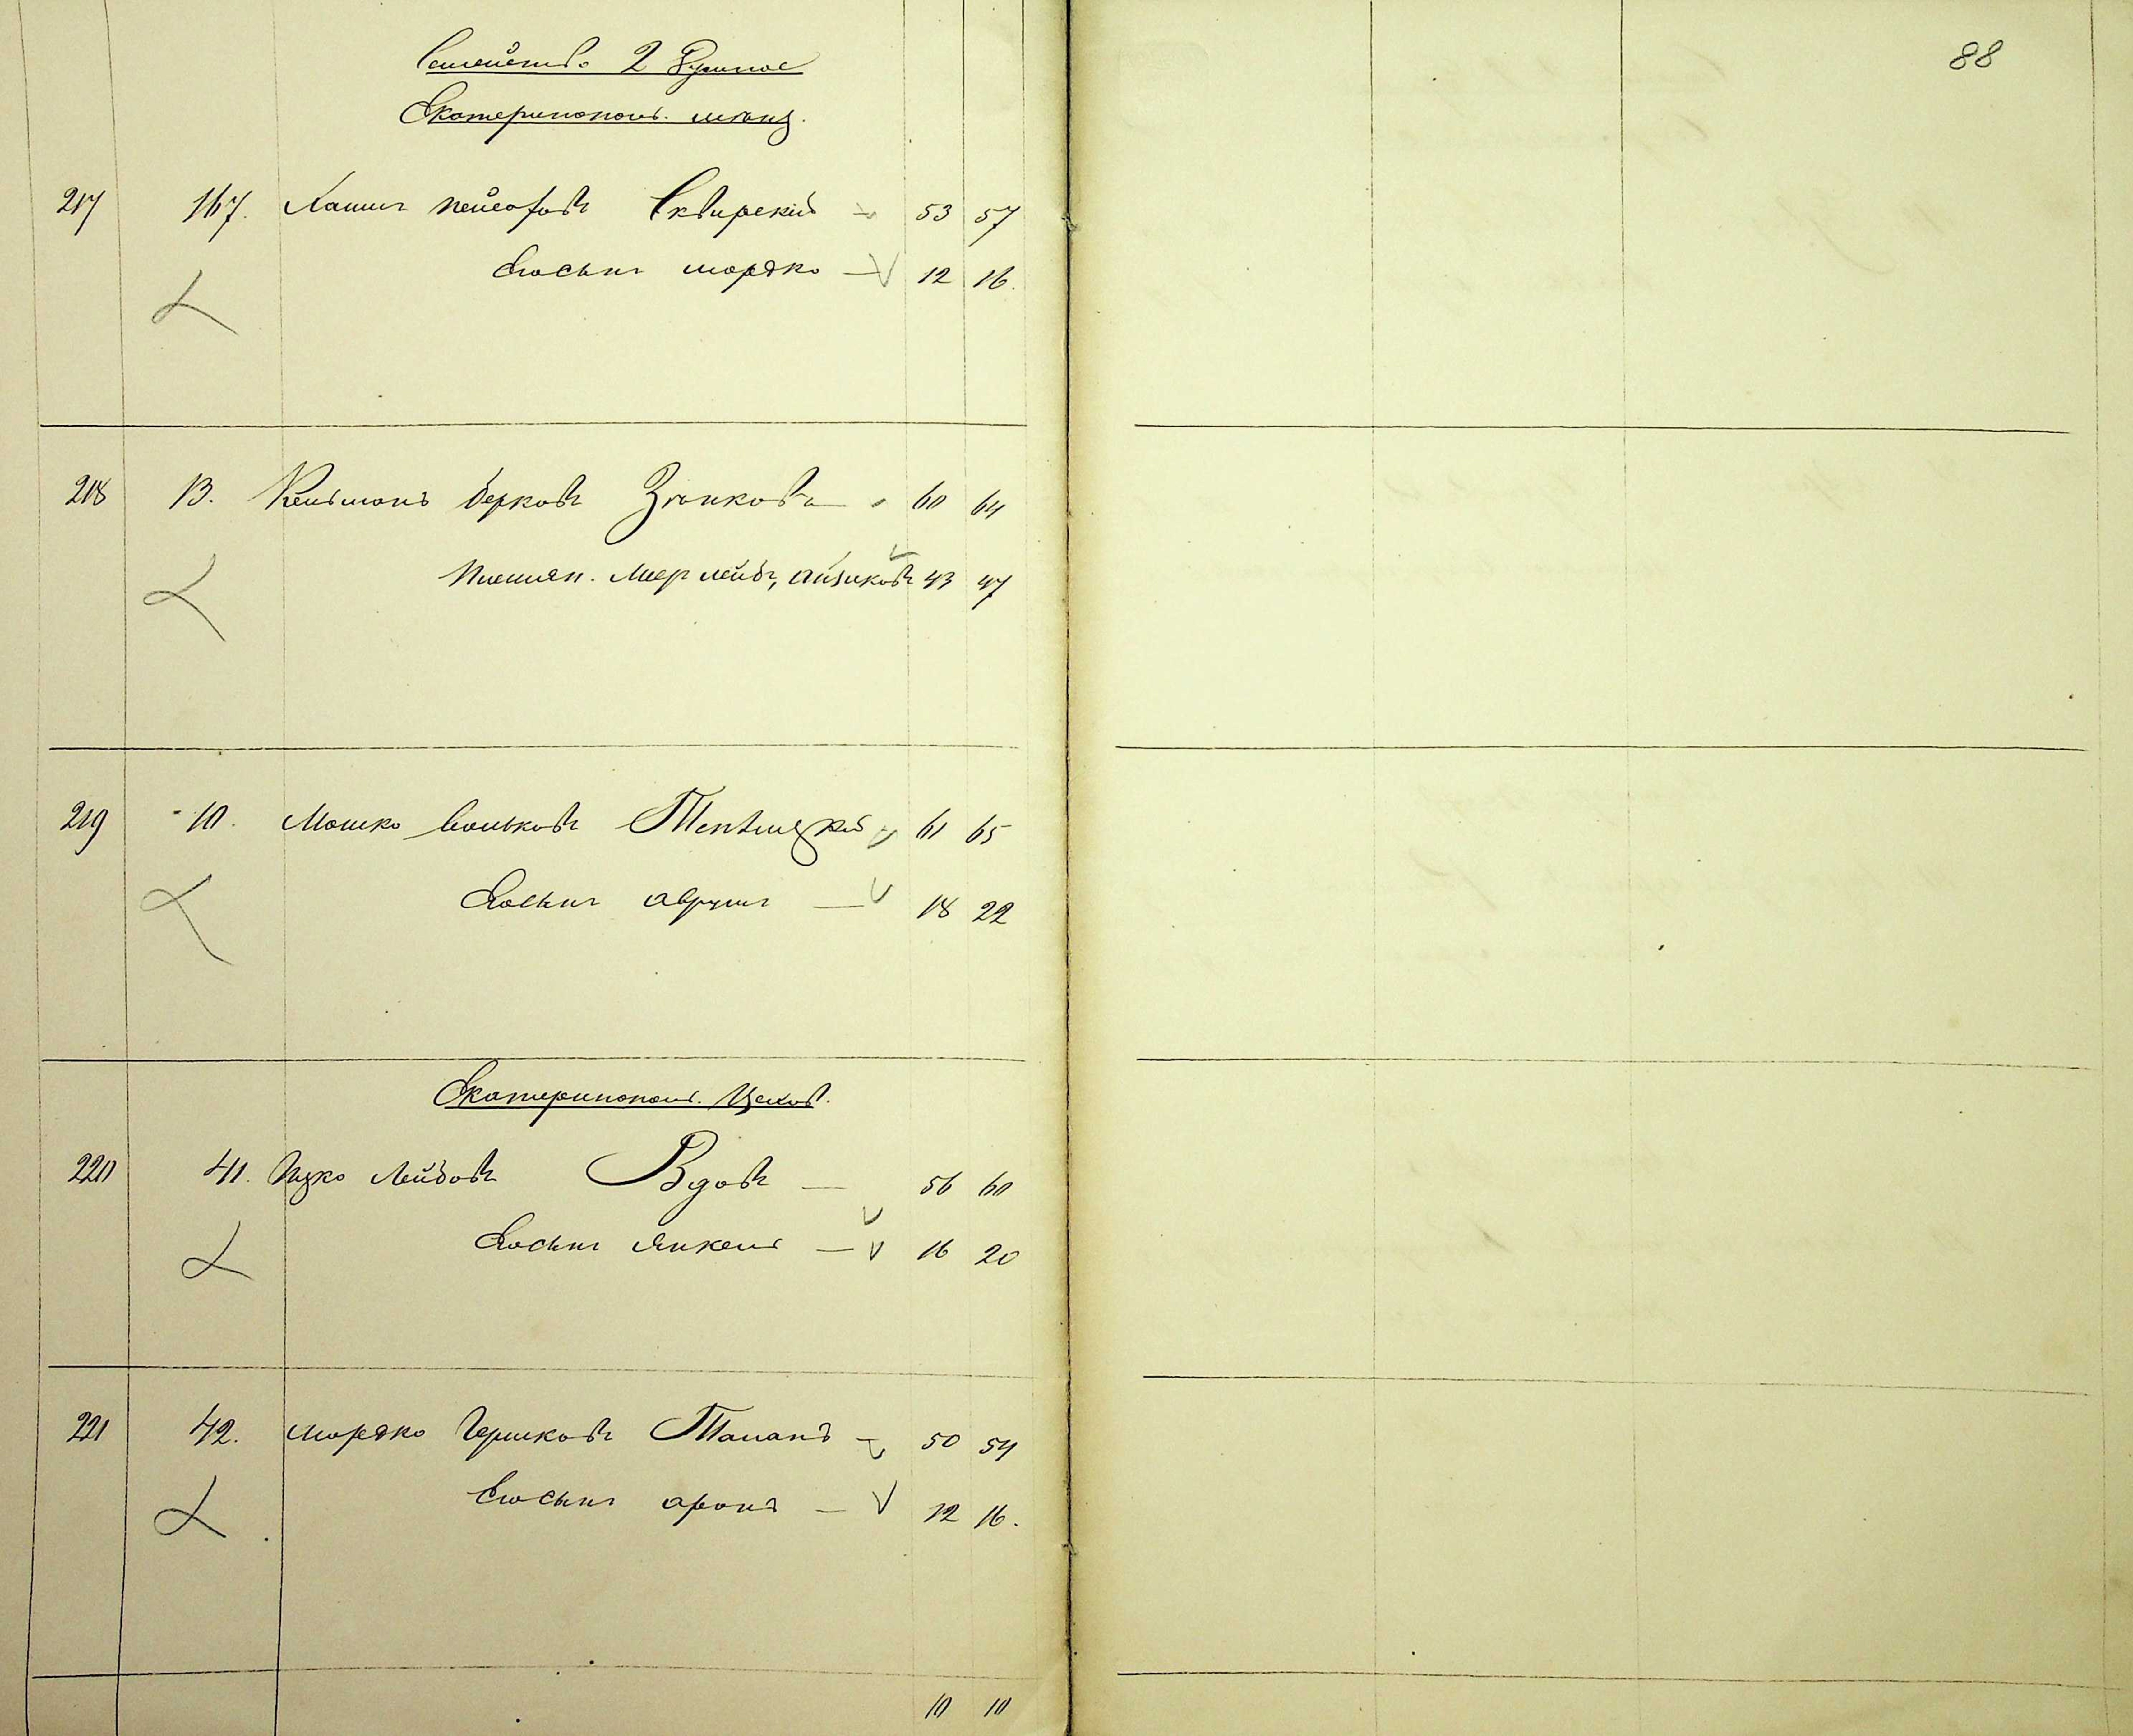 Семейств. 2 душное
Екатеринополь. мѣщ.
88
217 167. Хаимъ Пейсаховъ Сквирскій — 53 57
Его сынъ Мордко — 12 16.
218 13. Кельманъ Берковъ Зѣньковъ — 60 64
Племян. Меер Лейбъ, Айзиковъ 43 47
219 10. Мошко Вольковъ Теплицкій 61 65
Его сынъ Аврумъ — 18 22
Екатеринополь. Цехов.
220 41. Ицко Лейбовъ Вдовъ — 56 60
Его сынъ Янкель — 16 20
221 42. Мордко Гершковъ — 50 54
Его сынъ Аронъ — 12 16.
10 10